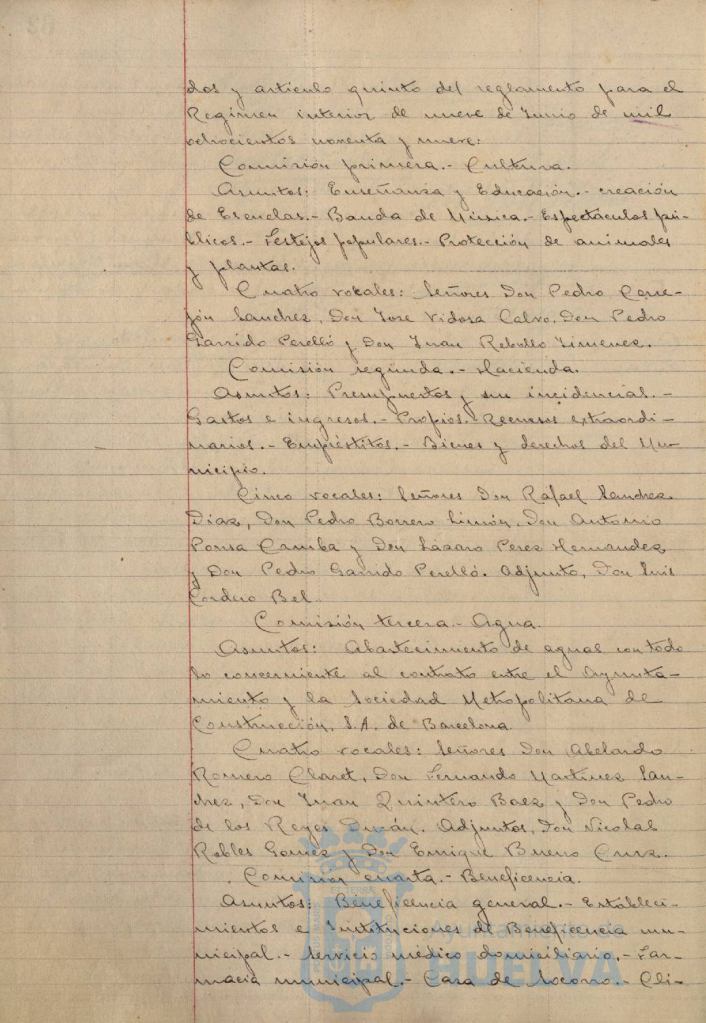 dos y articulo quinto del reglamento para el
Regimen interior de nueve de Junio de mil
ochocientos noventa y nueve:
Comisión primera.- Cultura.
Asuntos: Enseñanza y Educación.- creación
de Escuelas.- Banda de Música.- Espectáculos pú-
blicos.- Festejos populares.- Protección de animales
y plantas.
Cuatro vocales: Señores Don Pedro Cerre-
jón Sanchez, Don Jose Vidosa Calvo, Don Pedro
Garrido Perelló y Don Juan Rebollo Jimenez.
Comisión segunda.- Hacienda.
Asuntos: Presupuestos y sus incidencias.-
Gastos e ingresos.- Propios.- Recursos extraordi-
narios.- Empréstitos.- Bienes y derechos del Mu-
nicipio.
Cinco vocales: Señores Don Rafael Sanchez
Diaz, Don Pedro Borrero Limón, Don Antonio
Ponsa Camba y Don Lázaro Perez Hernandez
y Don Pedro Garrido Perelló. Adjunto, Don Luis
Cordero Bel.
Comisión tercera.- Agua.
Asuntos: Abastecimiento de aguas con todo
lo concerniente al contrato entre el Ayunta-
miento y la Sociedad Metropolitana de
Construcción, S.A. de Barcelona.
Cuatro vocales: Señores Don Abelardo
Romero Claret, Don Fernando Martinez San-
chez, Don Juan Quintero Baez y Don Pedro
de los Reyes Durán. Adjuntos, Don Nicolas
Robles Gomez y Don Enrique Bueno Cruz.
Comision cuarta.- Beneficencia.
Asuntos: Beneficencia general.- Estableci-
mientos e Instituciones de Beneficencia mu-
nicipal.- Servicio médico domiciliario.- Far-
macia municipal.- Casa de Socorro.- Clí-
Ayuntamiento de
HUELVA